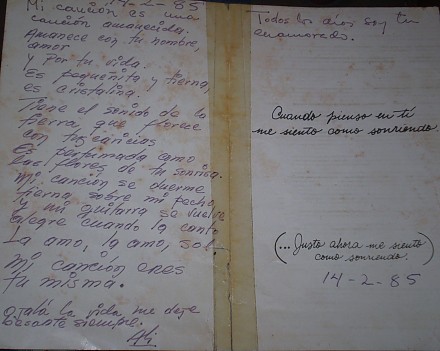 14-2-85
Mi canción es una
canción amanecida.
Amanece con tu nombre,
amor
y Por tu vida.
Es pequeñita y tierna,
es cristalina.
Tiene el sonido de la
tierra que florece
con tus caricias
Es perfumada como
las flores de tu sonrisa.
Mi canción se duerme
tierna sobre mi pecho
y mi guitarra se vuelve
alegre cuando la canto
La amo, la amo,
Mi canción eres
tu misma.
Ojalá la vida me deje
besarte siempre.
Todos los días soy tu
enamorado.
Cuando pienso en tí
me siento como sonriendo
(... Justo ahora me siento
como sonriendo.)
14-2-85